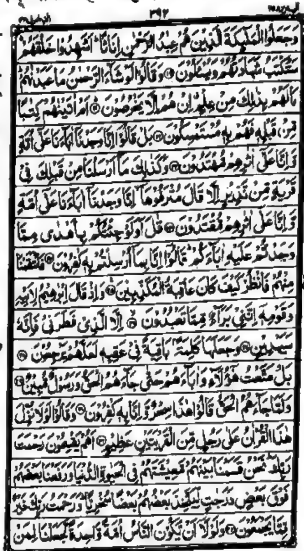 الزخرف ٤٣ ٣٩٢
وَجَعَلُوا الْمَلٰٓئِكَةَ الَّذِيْنَ هُمْ عِبٰدُ الرَّحْمٰنِ اِنَاثًا اَشَهِدُوْا خَلْقَهُمْ
سَتُكْتَبُ شَهَادَتُهُمْ وَيُسْـَٔلُوْنَ وَقَالُوْا لَوْ شَآءَ الرَّحْمٰنُ مَا عَبَدْنٰهُمْ
مَا لَهُمْ بِذٰلِكَ مِنْ عِلْمٍ اِنْ هُمْ اِلَّا يَخْرُصُوْنَ اَمْ اٰتَيْنٰهُمْ كِتٰبًا
مِّنْ قَبْلِهٖ فَهُمْ بِهٖ مُسْتَمْسِكُوْنَ بَلْ قَالُوْٓا اِنَّا وَجَدْنَآ اٰبَآءَنَا عَلٰٓى اُمَّةٍ
وَّاِنَّا عَلٰٓى اٰثٰرِهِمْ مُّهْتَدُوْنَ وَكَذٰلِكَ مَآ اَرْسَلْنَا مِنْ قَبْلِكَ فِيْ
قَرْيَةٍ مِّنْ نَّذِيْرٍ اِلَّا قَالَ مُتْرَفُوْهَآ اِنَّا وَجَدْنَآ اٰبَآءَنَا عَلٰٓى اُمَّةٍ
وَّاِنَّا عَلٰٓى اٰثٰرِهِمْ مُّقْتَدُوْنَ قٰلَ اَوَلَوْ جِئْتُكُمْ بِاَهْدٰى مِمَّا
وَجَدْتُّمْ عَلَيْهِ اٰبَآءَكُمْ قَالُوْٓا اِنَّا بِمَآ اُرْسِلْتُمْ بِهٖ كٰفِرُوْنَ فَانْتَقَمْنَا
مِنْهُمْ فَانْظُرْ كَيْفَ كَانَ عَاقِبَةُ الْمُكَذِّبِيْنَ وَاِذْ قَالَ اِبْرٰهِيْمُ لِاَبِيْهِ
وَقَوْمِهٖٓ اِنَّنِيْ بَرَآءٌ مِّمَّا تَعْبُدُوْنَ اِلَّا الَّذِيْ فَطَرَنِيْ فَاِنَّهٗ
سَيَهْدِيْنِ وَجَعَلَهَا كَلِمَةً بَاقِيَةً فِيْ عَقِبِهٖ لَعَلَّهُمْ يَرْجِعُوْنَ
بَلْ مَتَّعْتُ هٰٓؤُلَآءِ وَاٰبَآءَهُمْ حَتّٰى جَآءَهُمُ الْحَقُّ وَرَسُوْلٌ مُّبِيْنٌ
وَلَمَّا جَآءَهُمُ الْحَقُّ قَالُوْا هٰذَا سِحْرٌ وَّاِنَّا بِهٖ كٰفِرُوْنَ وَقَالُوْا لَوْلَا نُزِّلَ
هٰذَا الْقُرْاٰنُ عَلٰى رَجُلٍ مِّنَ الْقَرْيَتَيْنِ عَظِيْمٍ اَهُمْ يَقْسِمُوْنَ رَحْمَتَ
رَبِّكَ نَحْنُ قَسَمْنَا بَيْنَهُمْ مَّعِيْشَتَهُمْ فِي الْحَيٰوةِ الدُّنْيَا وَرَفَعْنَا بَعْضَهُمْ
فَوْقَ بَعْضٍ دَرَجٰتٍ لِّيَتَّخِذَ بَعْضُهُمْ بَعْضًا سُخْرِيًّا وَرَحْمَتُ رَبِّكَ خَيْرٌ
مِّمَّا يَجْمَعُوْنَ وَلَوْلَآ اَنْ يَّكُوْنَ النَّاسُ اُمَّةً وَّاحِدَةً لَّجَعَلْنَا لِمَنْ